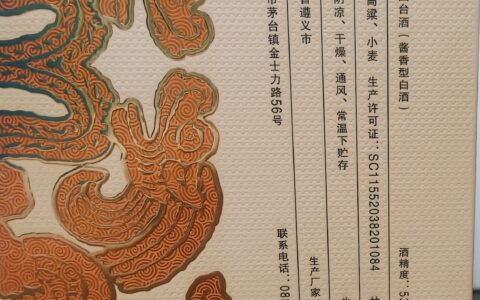 台酒（酱香型白酒） 酒精度：5
高粱、小麦 生产许可证：SC11552038201084
阴凉、干燥、通风、常温下贮存
省遵义市 生产厂家
市茅台镇金士力路56号
联系电话：08